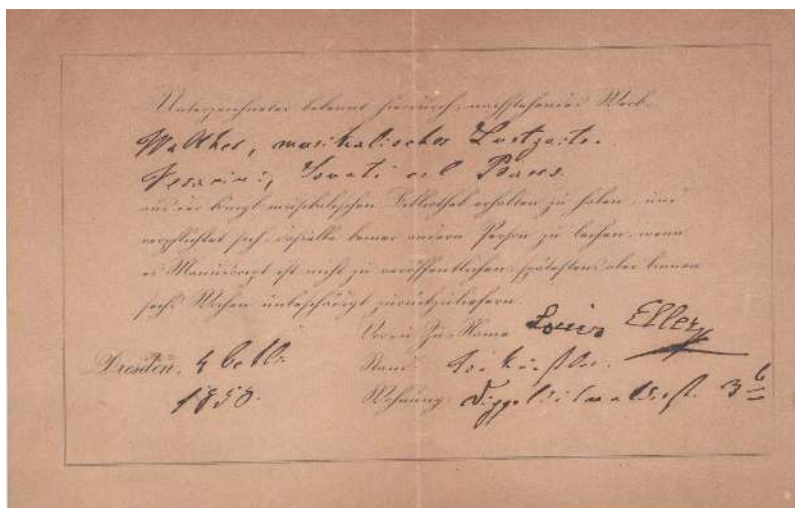 Unterzeichneter bekennt hierdurch, nachstehendes Werk:
Walther, musikalischer
Veracini, Sonati
aus der Königl. musikalischen Bibliothek erhalten zu haben, und
verpflichtet sich, dasselbe keiner andern Person zu leihen, wenn
es Manuscript ist nicht zu veröffentlichen, spätestens aber binnen
sechs Wochen unbeschädigt zurückzuliefern.
Vor- u. Zu-Name Louis Eller
Dresden, 4
Stand:
1850.
Wohnung: